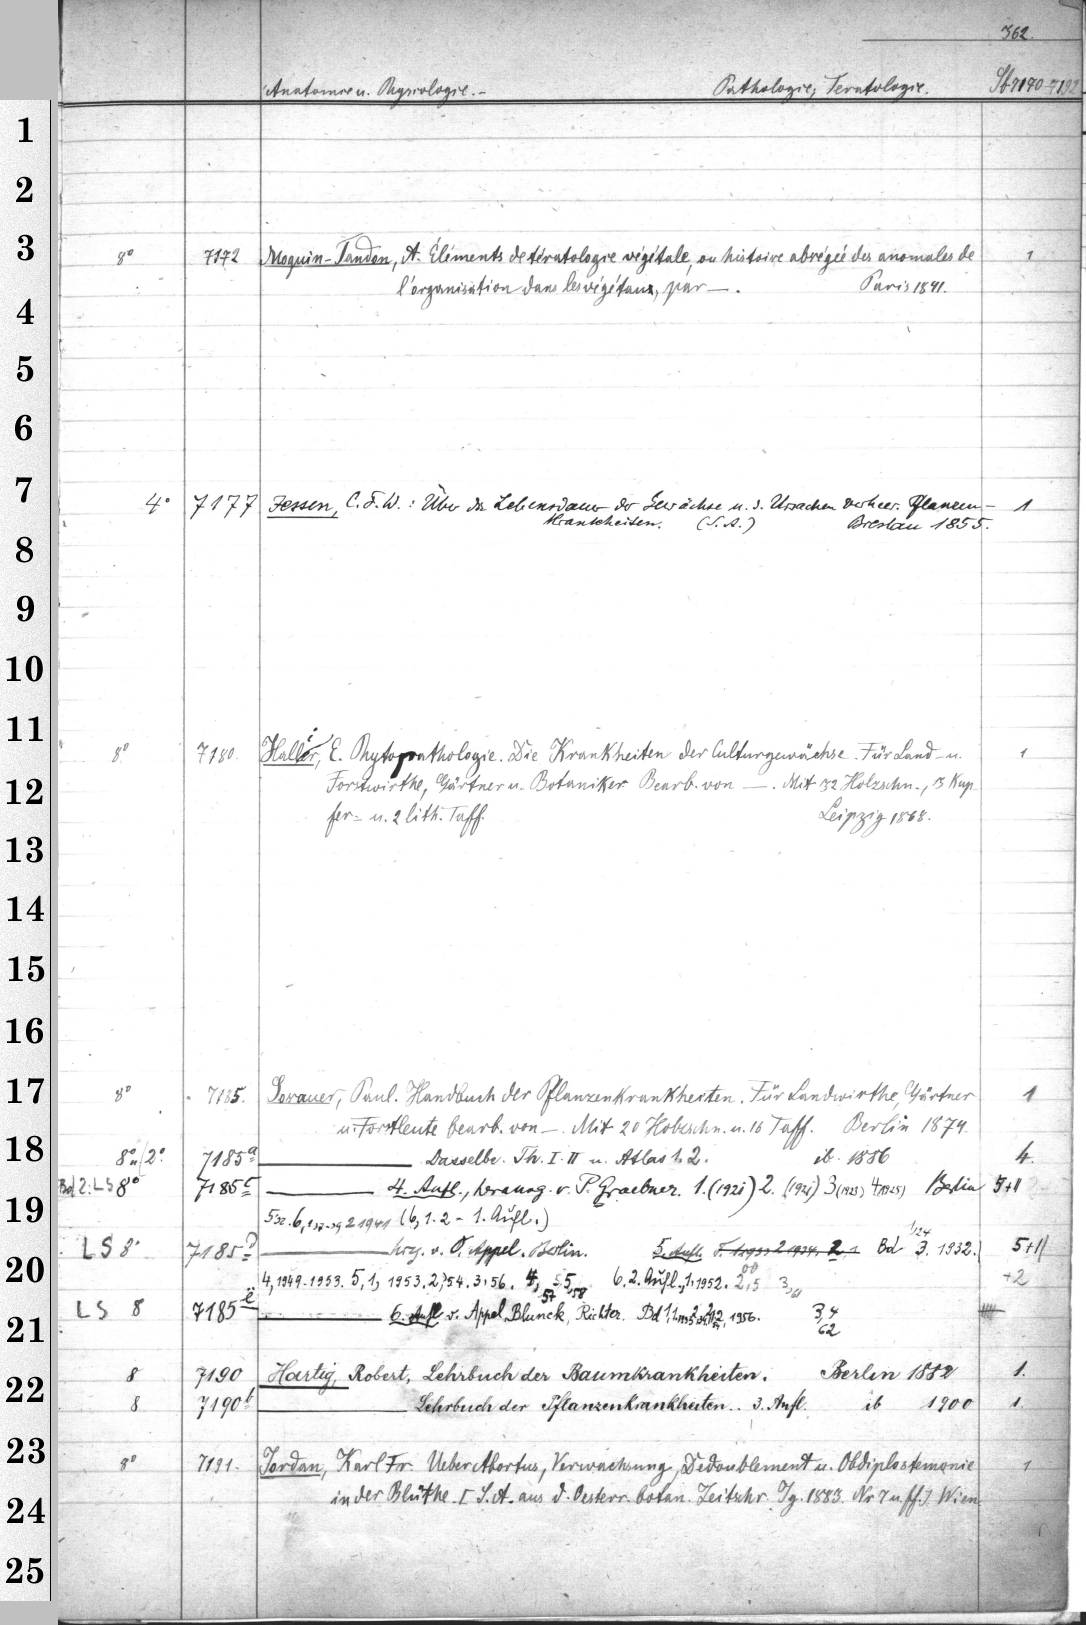 362.
Anatomie u. Physiologie. – Pathologie, Teratologie. St 7170–7192
1
2
3 8° 7172 Moquin-Tandon, A. Éléments de tératologie végétale, ou histoire abrégée des anomales de 1
l'organisation dans les végétaux, par —. Paris 1841.
4
5
6
7 4° 7177 Jessen, C. F. W.: Über die Lebensdauer der Gewächse u. d. Ursachen verheer. Pflanzen- 1
krankheiten. (S.A.) Breslau 1855.
8
9
10
11 8° 7180. Hallier, E. Phytopathologie. Die Krankheiten der Culturgewächse. Für Land- u. 1
12 Forstwirthe, Gärtner u. Botaniker. Bearb. von —. Mit 32 Holzschn., 13 Kup
fer- u. 2 lith. Taff. Leipzig 1868.
13
14
15
16
17 8° 7185. Sorauer, Paul. Handbuch der Pflanzenkrankheiten. Für Landwirthe, Gärtner 1
u. Forstleute bearb. von —. Mit 20 Holzschn. u. 16 Taff. Berlin 1874.
18 8° u. 2° 7185a ——— Dasselbe. Th. I. II u. Atlas 1. 2. ib. 1886 4.
Bd 2: LS 8° 7185c ——— 4. Aufl., herausg. v. P. Graebner. 1. (1921) 2. (1921) 3 (1923) 4 (1925) Berlin 5+1
19 6, 2 1941 (6, 1.2 – 1. Aufl.)
LS 8° 7185 ——— hrsg. v. O. Appel. Berlin. 5. Aufl. Bd 3. 1932. 5+1
20 4, 1949-1953. 5, 1, 1953. 2, 54. 3, 56. 4, 57 5, 58 6. 2. Aufl., 1, 1952. 2, 5 3, +2
LS 8 7185e ——— 6. Aufl v. Appel, Blunck, Richter. Bd 1, 1956. 3, 4
21 62
22 8 7190 Hartig, Robert, Lehrbuch der Baumkrankheiten. Berlin 1882 1.
8 7190b ——— Lehrbuch der Pflanzenkrankheiten. 3. Aufl. ib 1900 1.
23 8° 7191. Jordan, Karl Fr. Ueber Abortus, Verwachsung, Dedoublement u. Obdiplostemonie 1
24 in der Blüthe. [S.A. aus d. Oesterr. botan. Zeitschr. Jg. 1883. Nr 7 u. ff.] Wien
25